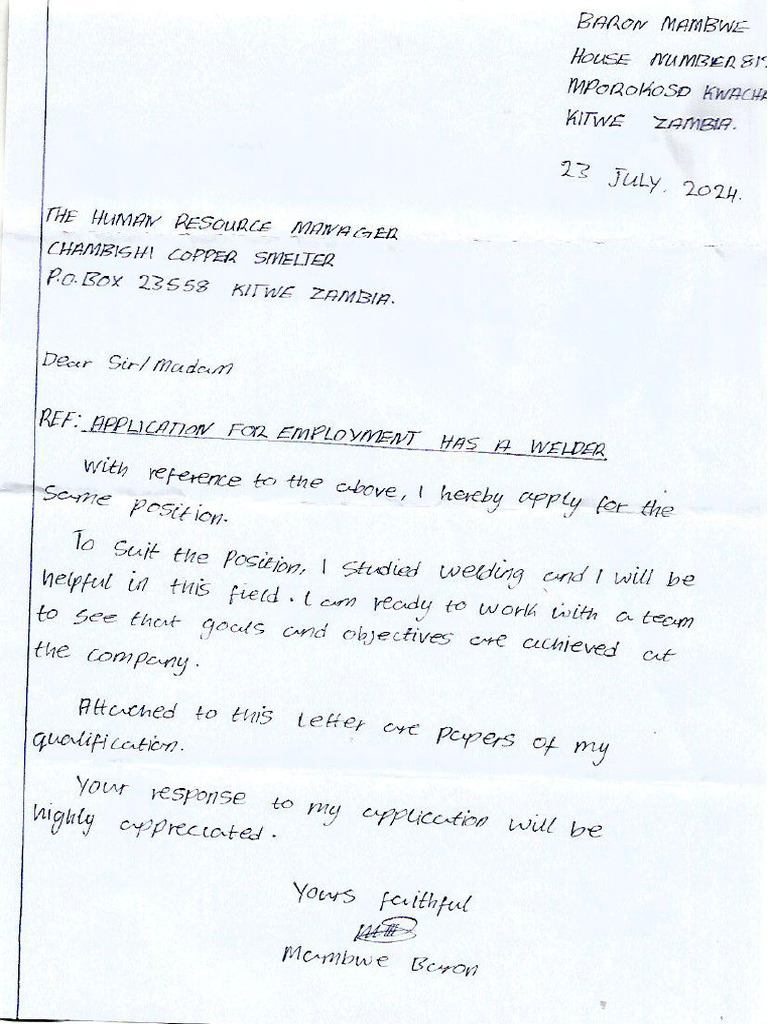 BARON MAMBWE
HOUSE NUMBER
MPOROKOSO
KITWE ZAMBIA.
23 JULY. 2024.
THE HUMAN RESOURCE MANAGER
CHAMBISHI COPPER SMELTER
P.O.BOX 23558 KITWE ZAMBIA.
Dear Sir/Madam
REF: APPLICATION FOR EMPLOYMENT HAS A WELDER
With reference to the above, I hereby apply for the
same position.
To suit the position, I studied welding and I will be
helpful in this field. I am ready to work with a team
to see that goals and objectives are achieved at
the company.
Attached to this letter are papers of my
qualification.
Your response to my application will be
highly appreciated.
Yours faithful
Mambwe Baron